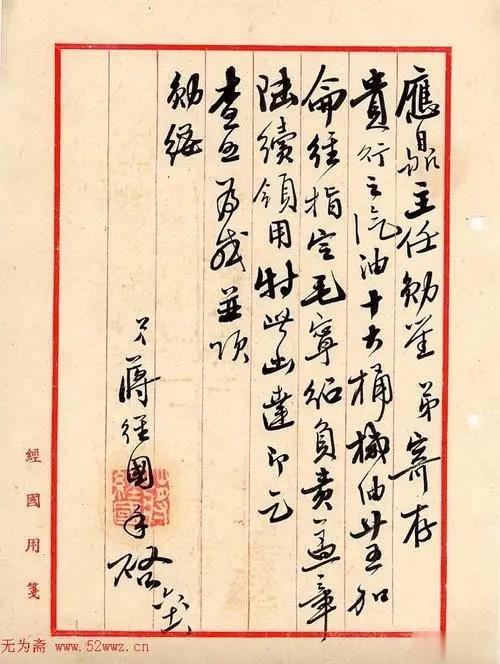 應鼎主任勛鑒 弟寄存
貴行之汽油十大桶機油廿五加
侖經指定毛寧紹負責蓋章
陸續領用特此函達即乞
查照為感並頌
勛綏
弟蔣經國手啟
經國用箋
无为斋 www.52wwz.cn